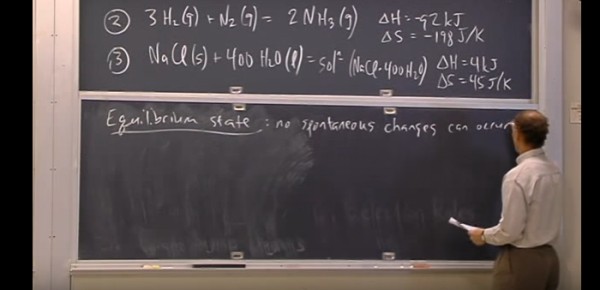 ② 3H₂(g) + N₂(g) = 2NH₃(g) ΔH = -92 kJ
ΔS = -198 J/K
③ NaCl(s) + 400 H₂O(l) = solⁿ (NaCl·400H₂O) ΔH = 4 kJ
ΔS = 45 J/K
Equilibrium state: no spontaneous changes can occur